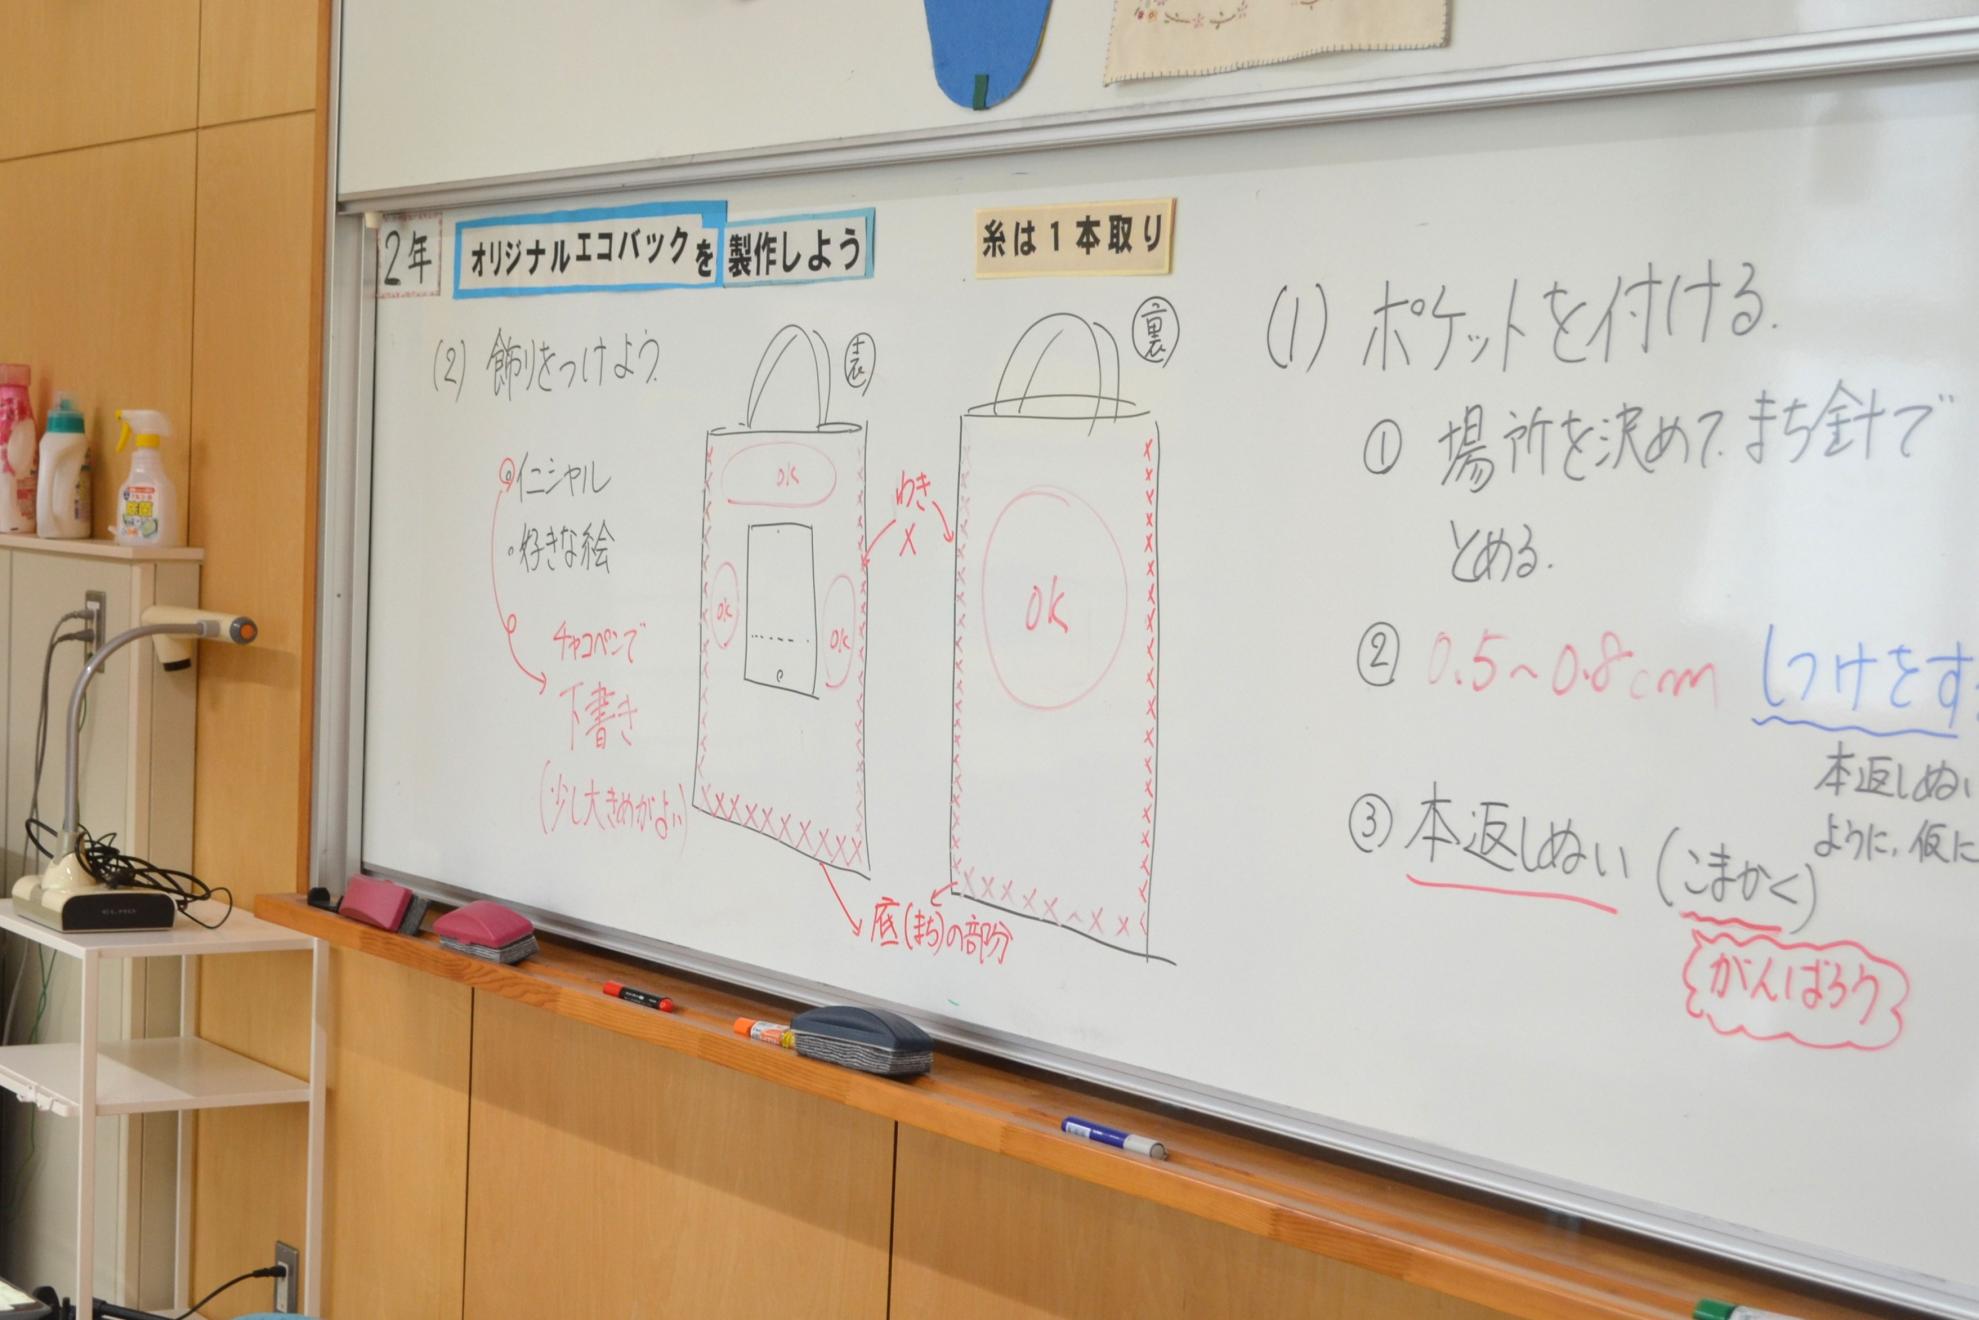 2年
オリジナルエコバックを製作しよう
糸は1本取り
(2) 飾りをつけよう
・イニシャル
・好きな絵
チャコペンで
下書き
(少し大きめがよい)
表
OK
OK
OK
わき
×
裏
OK
底(まち)の部分
(1) ポケットを付ける.
① 場所を決めて.まち針で
とめる.
② 0.5~0.8cm しつけをす
本返しぬい
ように、仮に
③ 本返しぬい (こまかく)
がんばろう
ELMO